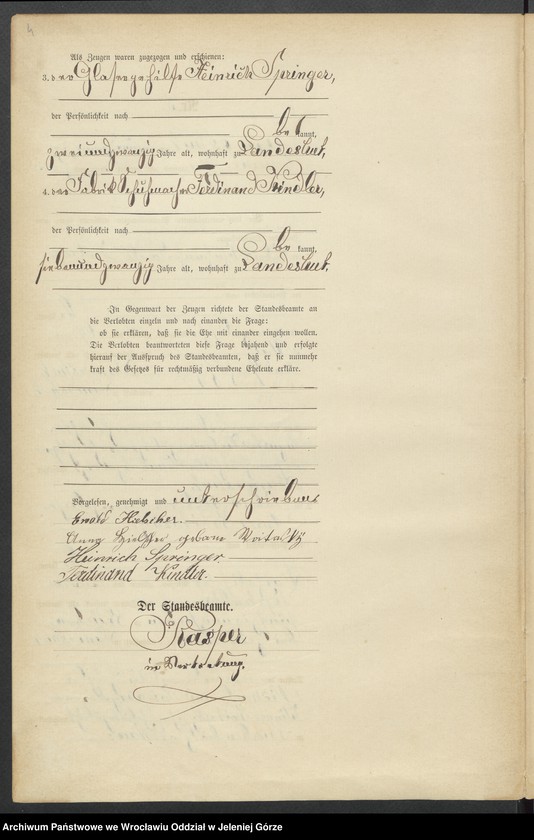 Als Zeugen waren zugezogen und erschienen:
3. der Glasergehilfe Heinrich Springer,
der Persönlichkeit nach
bekannt,
zweiundzwanzig Jahre alt, wohnhaft zu Landeshut,
4. der Fabrik Schuhmacher Ferdinand Kindler,
der Persönlichkeit nach
bekannt,
siebenundzwanzig Jahre alt, wohnhaft zu Landeshut.
In Gegenwart der Zeugen richtete der Standesbeamte an
die Verlobten einzeln und nach einander die Frage:
ob sie erklären, daß sie die Ehe mit einander eingehen wollen.
Die Verlobten beantworteten diese Frage bejahend und erfolgte
hierauf der Ausspruch des Standesbeamten, daß er sie nunmehr
kraft des Gesetzes für rechtmäßig verbundene Eheleute erkläre.
Vorgelesen, genehmigt und unterschrieben
Ewald
Anna geborne
Heinrich Springer.
Ferdinand Kindler.
Der Standesbeamte.
Kasper
in Vertretung.
Archiwum Państwowe we Wrocławiu Oddział w Jeleniej Górze